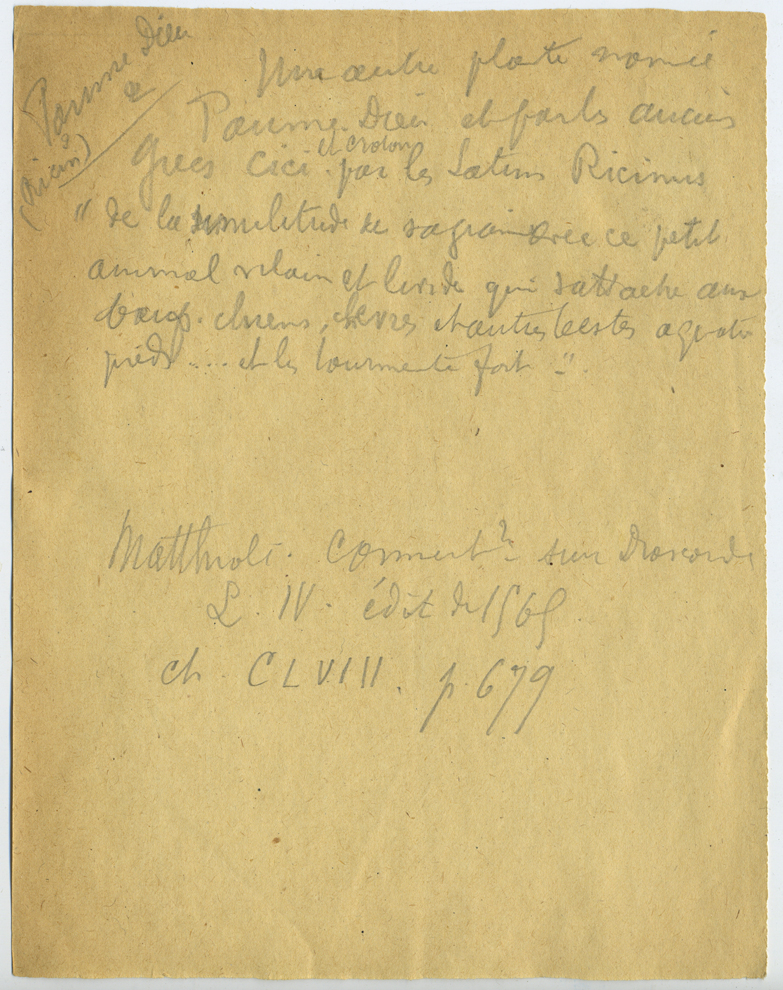 Paume Dieu
(Ricin)
Une autre plate nomée
Paume. Dieu et par les aucuns
Grecs Cici et croton par les Latins Ricinus
" de la similitude de sa graine avec ce petit
animal vilain et livide qui s'attache aux
boeufs. chiens, chevres et autres bestes a quatre
pieds .... et les tourmente fort ".
Matthiole. Comment? sur Dioscoride
L. IV. édit de 1565
ch. CLVIII. p. 679